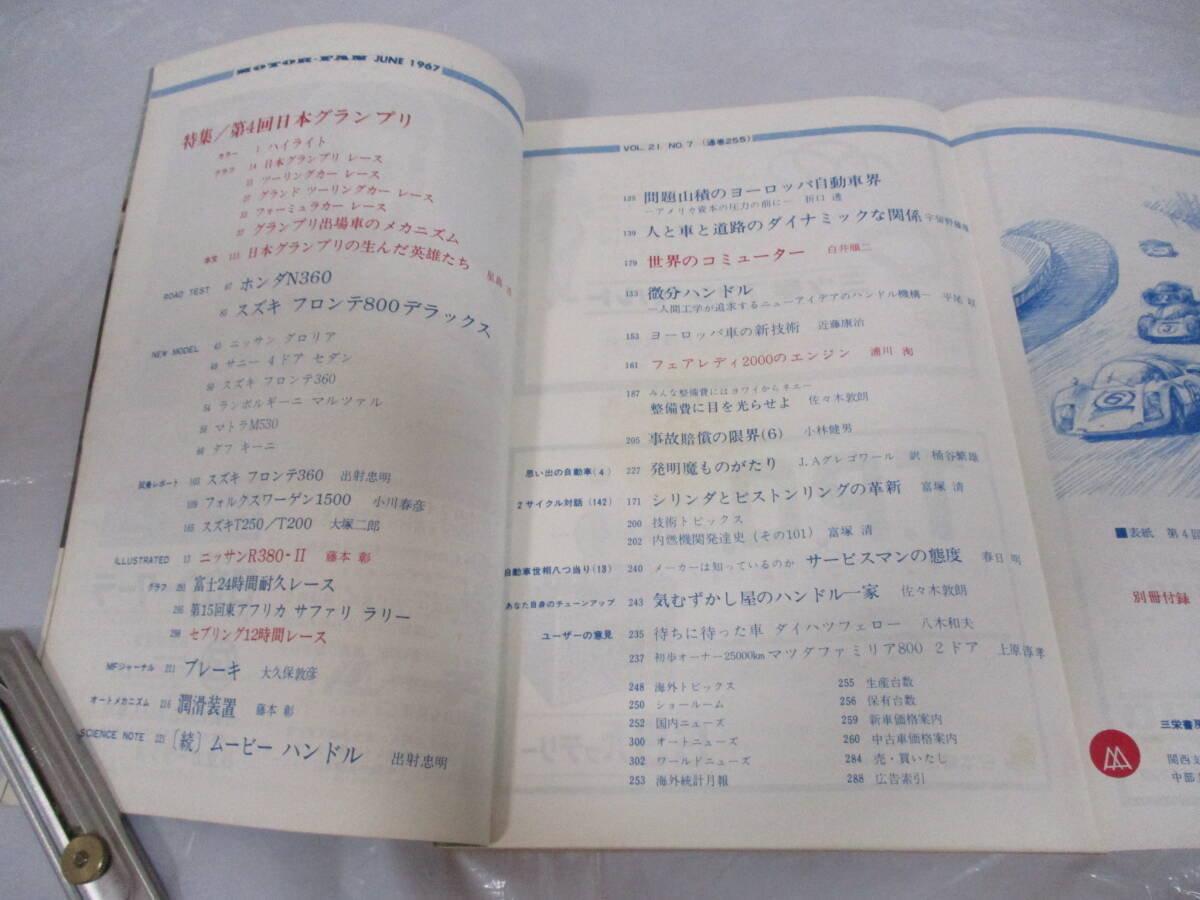 MOTOR-FAN JUNE 1967
特集/第4回日本グランプリ
カラー 1 ハイライト
グラフ 14 日本グランプリ レース
ツーリングカー レース
グランド ツーリングカー レース
フォーミュラカー レース
グランプリ出場車のメカニズム
本文 113 日本グランプリの生んだ英雄たち
ROAD TEST ホンダN360
スズキ フロンテ800デラックス
NEW MODEL ニッサン グロリア
サニー 4ドア セダン
スズキ フロンテ360
54 ランボルギーニ マルツァル
マトラM530
ダフ キーニ
試乗レポート 103 スズキ フロンテ360 出射忠明
109 フォルクスワーゲン1500 小川春彦
165 スズキT250/T200 大塚二郎
ILLUSTRATED 17 ニッサンR380-II 藤本 彰
グラフ 富士24時間耐久レース
295 第15回東アフリカ サファリ ラリー
298 セブリング12時間レース
MFジャーナル 211 ブレーキ 大久保敦彦
オートメカニズム 216 潤滑装置 藤本 彰
SCIENCE NOTE 221 〔続〕ムービー ハンドル 出射忠明
VOL. 21 NO. 7 (通巻255)
125 問題山積のヨーロッパ自動車界
―アメリカ資本の圧力の前に― 折口 透
139 人と車と道路のダイナミックな関係
179 世界のコミューター 白井順二
133 微分ハンドル
―人間工学が追求するニューアイデアのハンドル機構― 平尾 収
153 ヨーロッパ車の新技術 近藤康治
161 フェアレディ2000のエンジン 浦川 洵
187 みんな整備費にはヨワイからネエ―
整備費に目を光らせよ 佐々木敦朗
205 事故賠償の限界(6) 小林健男
思い出の自動車(4) 227 発明魔ものがたり J.Aグレゴワール 訳 桶谷繁雄
2サイクル対話(142) 171 シリンダとピストンリングの革新 富塚 清
200 技術トピックス
202 内燃機関発達史(その101) 富塚 清
自動車世相八つ当り(13) 240 メーカーは知っているのか サービスマンの態度 春日 明
あなた自身のチューンアップ 243 気むずかし屋のハンドル一家 佐々木敦朗
ユーザーの意見 235 待ちに待った車 ダイハツフェロー 八木和夫
237 初歩オーナー25000km マツダファミリア800 2ドア 上原淳孝
248 海外トピックス
250 ショールーム
252 国内ニューズ
300 オートニューズ
302 ワールドニューズ
253 海外統計月報
255 生産台数
256 保有台数
259 新車価格案内
260 中古車価格案内
284 売・買いたし
288 広告索引
■表紙 第4回
別冊付録
三栄書房
関西支
中部